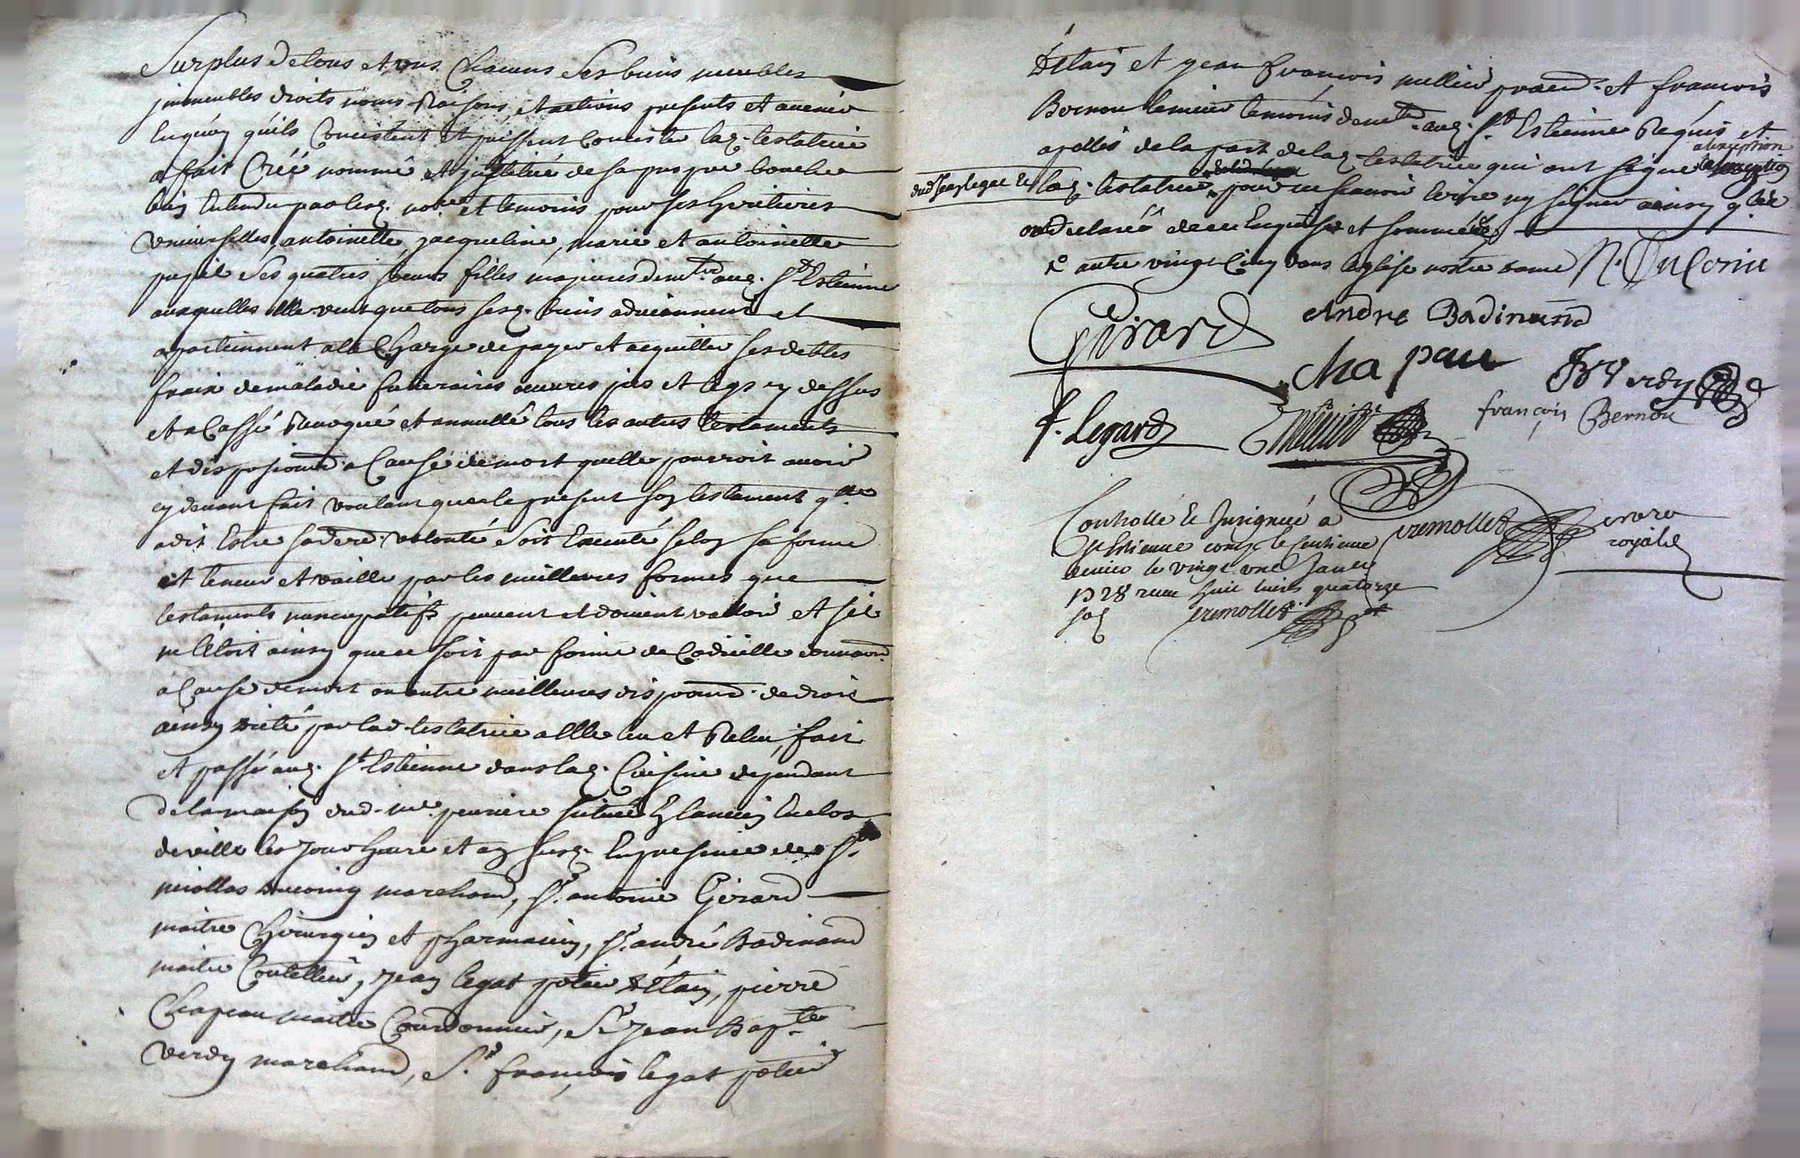 Surplus de tous et uns Chacuns ses biens meubles
immeubles droits noms Raisons, et actions presents et avenir
Enquoy quils Concistent et puissent Concister lad. testatrice
a fait Créé nommé et institué de sa propre bouche
bien Entendu par lesd. nore. et temoins pour ses heritieres
universelles, antoinette, jacqueline, marie et antoinette
ses quatres soeurs filles majeures aud. St Estienne
ausquelles elle veut que tous sesd. biens adviennent et
apartiennent a la Charge de payer et acquitter ses debtes
fraix de maladie funeraires oeuvres pies et legs cy dessus
et a Cassé Revoqué et annullé tous les autres testaments
et dispositions a Cause de mort quelle pourroit avoir
cy devant fait voulant que le present soy testament qlle
a dit Estre sa dere. volonté soit Executé selon sa forme
et teneur et vaille par les meilleures formes que
testaments nuncupatifs peuvent et doivent valloir et sil
ne l'etoit ainsy que ce soit par forme de Codicille donnaon.
a Cause de mort ou autre meilleures disposaons. de droit
ainsy dicté par lad. testatrice a Elle leu et Releu, fait
et passé aud. St Estienne dans lad. Cuisine dependant
de la maison dud. située En lancien Enclos
de ville les jour heure et an susd. En presence de Sr.
nicollas ducoing marchand, Sr. antoine Girard
maitre Chirurgien et pharmacien, Sr. andré Badinand
maitre Coutellier, jean legat potier d'Etain, pierre
Chapeau maitre Courdonnier, Sr. jean Bapte
verdy marchand, Sr. françois legat potier
d'Etain et jean françois mellier et françois
Bernou temoins aud. St. Estienne Requis et
apellés de la part de lad. testatrice qui ont signé a l'exception
de lad. testatrice pour ne scavoir Ecrire ny signer ainsy qlle
a declaré de ce Enquise et sommée
autre vingt Cinq dans leglise nostre dame N. DuCoin
Girard
André Badinand
Chapeau
JB Verdy
f. Legard
françois Bernou
Controllé et Insignué a
St. Estienne
dernier le vingt une janer.
1728 receu huit livres quatorze
sols
tremollet
tremollet
royal